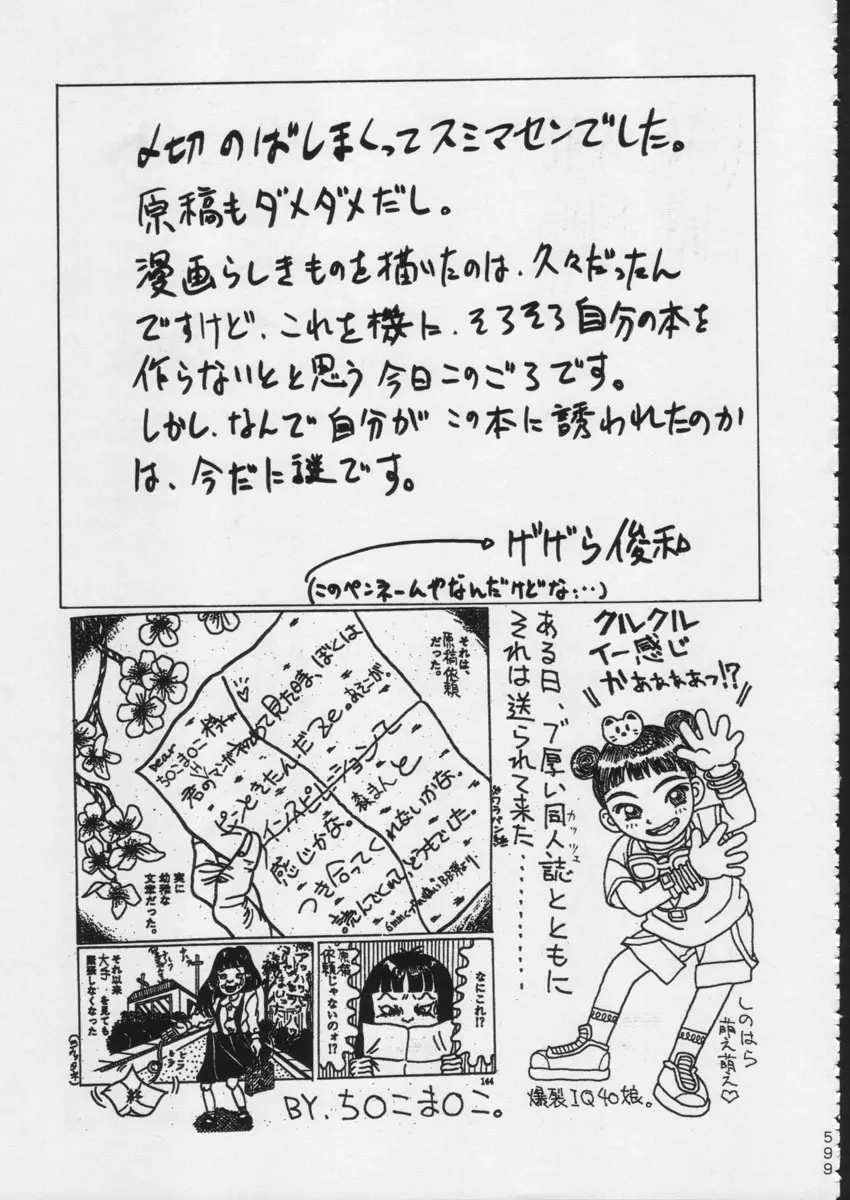 〆切のばしまくってスミマセンでした。
原稿もダメダメだし。
漫画らしきものを描いたのは、久々だったん
ですけど、これを機に、そろそろ自分の本を
作らないとと思う今日このごろです。
しかし、なんで自分がこの本に誘われたのか
は、今だに謎です。
げげら俊和
(このペンネームやなんだけどな…)
クルクル
イー感じ
かぁぁぁぁっ!?
ある日、ブ厚い同人誌とともに
カッツェ
それは送られて来た…………
それは、
原稿依頼
だった。
dear
ち〇こま〇こ様
君のマンガ
って見た時、ぼくは
ピンときたんだZe。
インスピレーション
感じかな。
つき合ってくれないかな。
読んでくれて、どうもでした。
※ワラバン紙
実に
幼稚な
文章だった。
なにこれ!?
原稿
依頼じゃないのォ!?
144
それ以来
大手を見ても
緊張しなくなった
終
BY.ち〇こま〇こ。
しのはら
萌え萌え♡
爆裂IQ40娘。
599